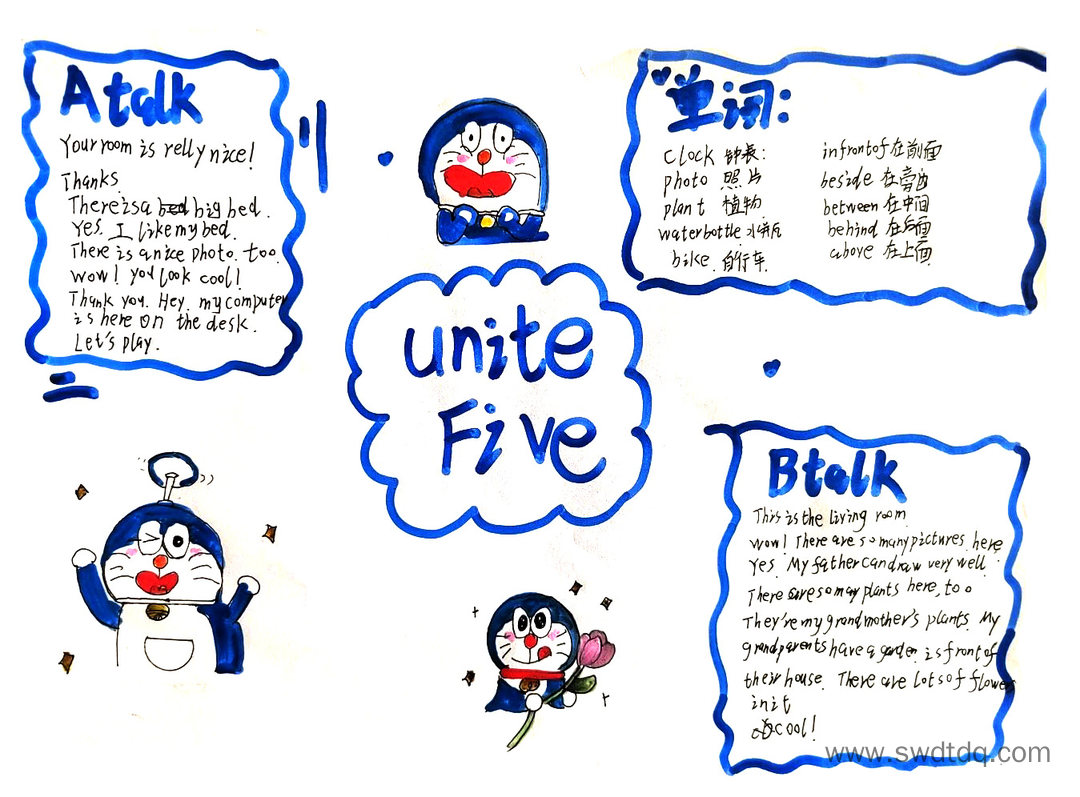 A talk
Your room is relly nice!
Thanks
There is a big bed.
Yes. I like my bed.
There is a nice photo. too.
wow! you look cool!
Thank you. Hey. my computer
is here on the desk.
Let's play.
单词:
clock 钟表:
photo 照片
plant 植物
water bottle 水瓶
bike. 自行车.
in front of 在前面
beside 在旁边
between 在中间
behind 在后面
above 在上面
unite
Five
B talk
This is the living room.
wow! There are so many pictures here
Yes. My father can draw very well.
There are so may plants here, too
They're my grandmother's plants. My
grandparents have a garden is front of
their house. There are lots of flowers
in it
cool!
www.swdtdq.com